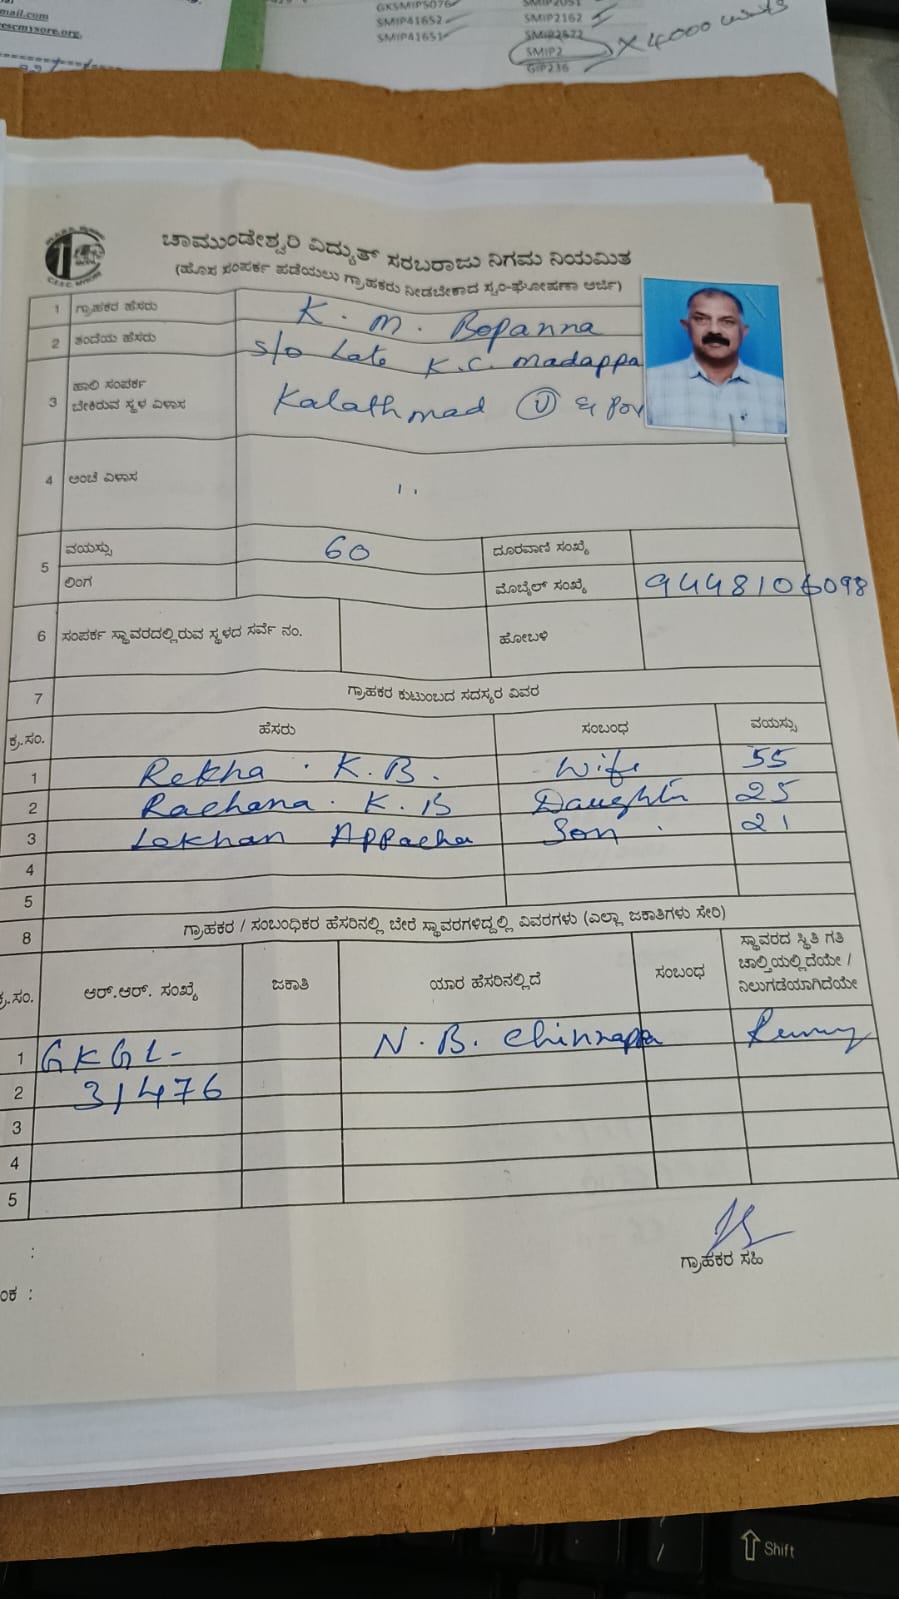 mail.com
escmysore.org,
GKSMIP5076
SMIP41652
SMIP41651
SMIP2051
SMIP2162
SMIP2672
SMIP2 X 4000 units
GIP236
ಚಾಮುಂಡೇಶ್ವರಿ ವಿದ್ಯುತ್ ಸರಬರಾಜು ನಿಗಮ ನಿಯಮಿತ
(ಹೊಸ ಸಂಪರ್ಕ ಪಡೆಯಲು ಗ್ರಾಹಕರು ನೀಡಬೇಕಾದ ಸ್ವಂ-ಘೋಷಣಾ ಅರ್ಜಿ)
1 ಗ್ರಾಹಕರ ಹೆಸರು K. M. Bopanna
2 ತಂದೆಯ ಹೆಸರು S/o Late K.C. Madappa
3 ಹಾಲಿ ಸಂಪರ್ಕ
ಬೇಕಿರುವ ಸ್ಥಳ ವಿಳಾಸ Kalathmad (V)
4 ಅಂಚೆ ವಿಳಾಸ ,,
5 ವಯಸ್ಸು 60 ದೂರವಾಣಿ ಸಂಖ್ಯೆ
ಲಿಂಗ ಮೊಬೈಲ್ ಸಂಖ್ಯೆ 9448106098
6 ಸಂಪರ್ಕ ಸ್ಥಾವರದಲ್ಲಿರುವ ಸ್ಥಳದ ಸರ್ವೆ ನಂ. ಹೋಬಳಿ
7 ಗ್ರಾಹಕರ ಕುಟುಂಬದ ಸದಸ್ಯರ ವಿವರ
ಕ್ರ.ಸಂ. ಹೆಸರು ಸಂಬಂಧ ವಯಸ್ಸು
1 Rekha . K.B. Wife 55
2 Rachana. K. B Daughter 25
3 Lekhan Appacha Son . 21
4
5
8 ಗ್ರಾಹಕರ / ಸಂಬಂಧಿಕರ ಹೆಸರಿನಲ್ಲಿ ಬೇರೆ ಸ್ಥಾವರಗಳಿದ್ದಲ್ಲಿ ವಿವರಗಳು (ಎಲ್ಲಾ ಜಕಾತಿಗಳು ಸೇರಿ)
ಕ್ರ.ಸಂ. ಆರ್.ಆರ್. ಸಂಖ್ಯೆ ಜಕಾತಿ ಯಾರ ಹೆಸರಿನಲ್ಲಿದೆ ಸಂಬಂಧ ಸ್ಥಾವರದ ಸ್ಥಿತಿ ಗತಿ
ಚಾಲ್ತಿಯಲ್ಲಿದೆಯೇ /
ನಿಲುಗಡೆಯಾಗಿದೆಯೇ
1 GKGL- N. B. Chinnappa
2 31476
3
4
5
ಗ್ರಾಹಕರ ಸಹಿ
:
ಂಕ :
Shift
/